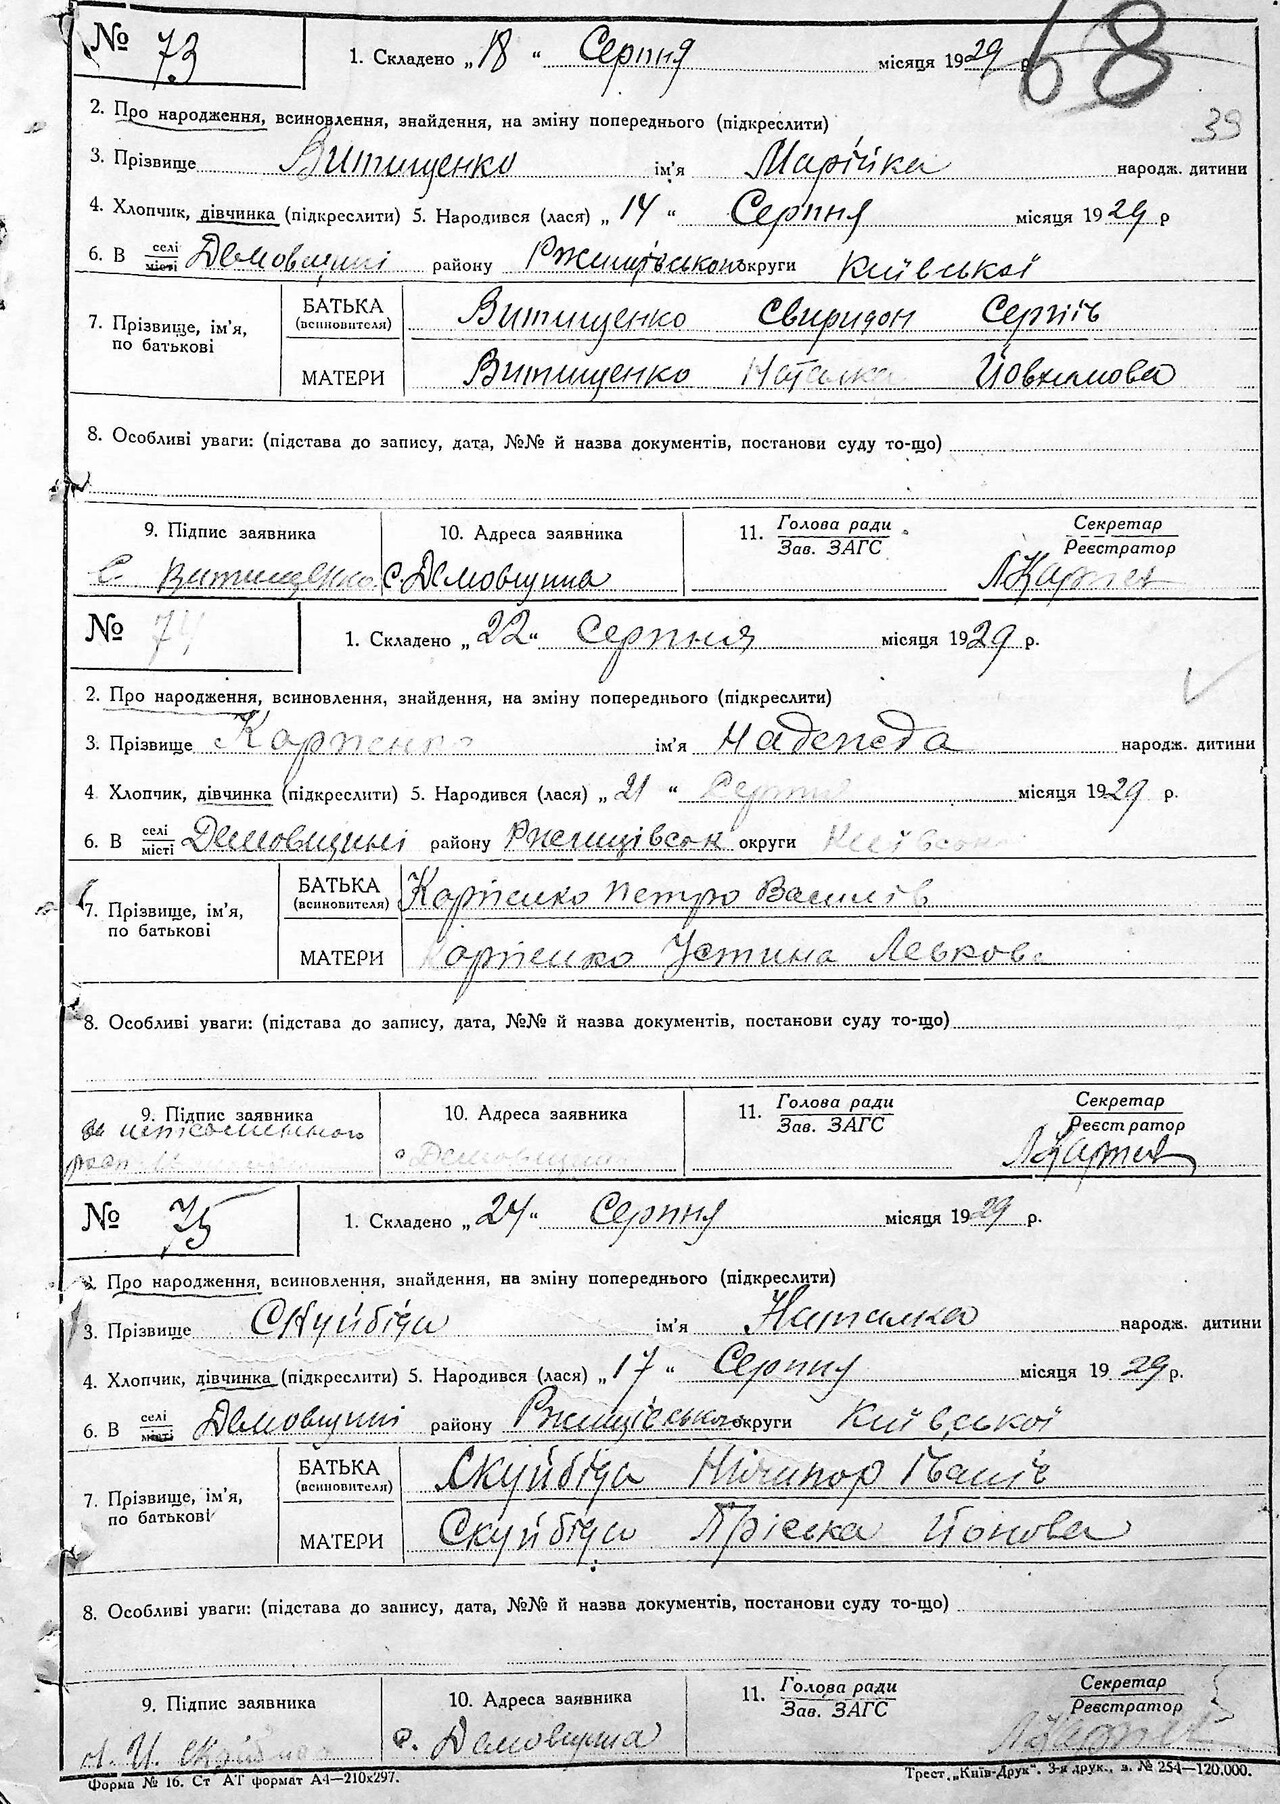 № 73 1. Складено „18“ Серпня місяця 1929 р. 68
39
2. Про народження, всиновлення, знайдення, на зміну попереднього (підкреслити)
3. Прізвище Витищенко ім'я Марійка народж. дитини
4. Хлопчик, дівчинка (підкреслити) 5. Народився (лася) „14“ Серпня місяця 1929 р
6. В селі/місті Демовщині району Ржищівськом округи Київської
7. Прізвище, ім'я, по батькові БАТЬКА (всиновителя) Витищенко Свиридон Сергіїв
МАТЕРИ Витищенко Наталка Йовхимова
8. Особливі уваги: (підстава до запису, дата, №№ й назва документів, постанови суду то-що)
9. Підпис заявника 10. Адреса заявника 11. Голова ради/Зав. ЗАГС Секретар/Реєстратор
С. Витищенко с. Демовщина
№ 74 1. Складено „22“ Серпня місяця 1929 р.
2. Про народження, всиновлення, знайдення, на зміну попереднього (підкреслити)
3. Прізвище Карпенко ім'я Надежда народж. дитини
4 Хлопчик, дівчинка (підкреслити) 5. Народився (лася) „21“ Серпня місяця 1929 р.
6. В селі/місті Демовщині району Ржищівськ округи Київської
7. Прізвище, ім'я, по батькові БАТЬКА (всиновителя) Карпенко Петро Василів
МАТЕРИ Карпенко Устина Левкова
8. Особливі уваги: (підстава до запису, дата, №№ й назва документів, постанови суду то-що)
9. Підпис заявника 10. Адреса заявника 11. Голова ради/Зав. ЗАГС Секретар/Реєстратор
за неписьменного
с Демовщина
№ 75 1. Складено „24“ Серпня місяця 1929 р.
2. Про народження, всиновлення, знайдення, на зміну попереднього (підкреслити)
3. Прізвище Скуйбіда ім'я Наталка народж. дитини
4. Хлопчик, дівчинка (підкреслити) 5. Народився (лася) „17“ Серпня місяця 1929 р.
6. В селі/місті Демовщині району Ржищівського округи Київської
7. Прізвище, ім'я, по батькові БАТЬКА (всиновителя) Скуйбіда Ничипор Іванів
МАТЕРИ Скуйбіда Пріська Йонова
8. Особливі уваги: (підстава до запису, дата, №№ й назва документів, постанови суду то-що)
9. Підпис заявника 10. Адреса заявника 11. Голова ради/Зав. ЗАГС Секретар/Реєстратор
с. Демовщина
Форма № 16. Ст АТ формат А4—210х297. Трест „Київ-Друк“. 3-я друк., з. № 254—120.000.